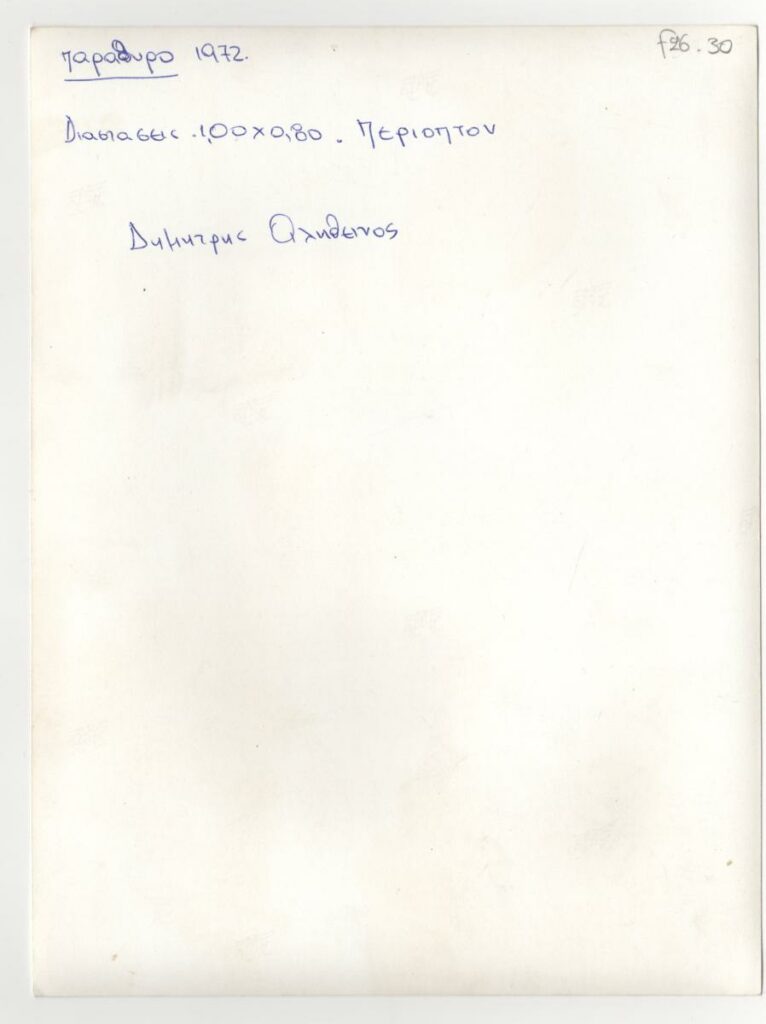 παραθυρο 1972. f26.30
Διαστασεις .1,00 x 0,80 . Περιοπτον
Δημητρης Αληθεινος